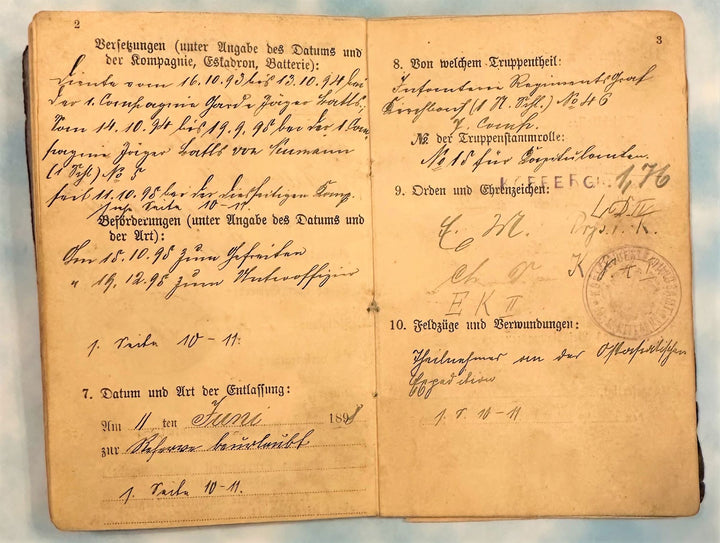 2
Versetzungen (unter Angabe des Datums und
der Kompagnie, Eskadron, Batterie):
Diente vom 16.10.93 bis 13.10.94 bei
der 1. Compagnie Garde Jäger Batls,
Vom 14.10.94 bis 19.9.95 bei der 1. Com-
pagnie Jäger Batls von Neumann
(1 Schl) No 5
seit 11.10.95 bei der diesseitigen Komp.
s. Seite 10-11.
Beförderungen (unter Angabe des Datums und
der Art):
Am 15.10.95 zum Gefreiten
" 19.12.95 zum Unteroffizier
s. Seite 10-11.
7. Datum und Art der Entlassung:
Am 11 ten Juni 1898
zur Reserve beurlaubt
s. Seite 10-11.
3
8. Von welchem Truppentheil:
Infanterie Regiments Graf
Kirchbach (1 N. Schl.) No 46
7. Comp.
No. der Truppenstammrolle:
No 15 für Kapitulanten.
1,76
9. Orden und Ehrenzeichen:
L.D. II
C. M.
K
E K II
10. Feldzüge und Verwundungen:
Theilnehmer an der Ostasiatischen
Expedition
s. S. 10-11